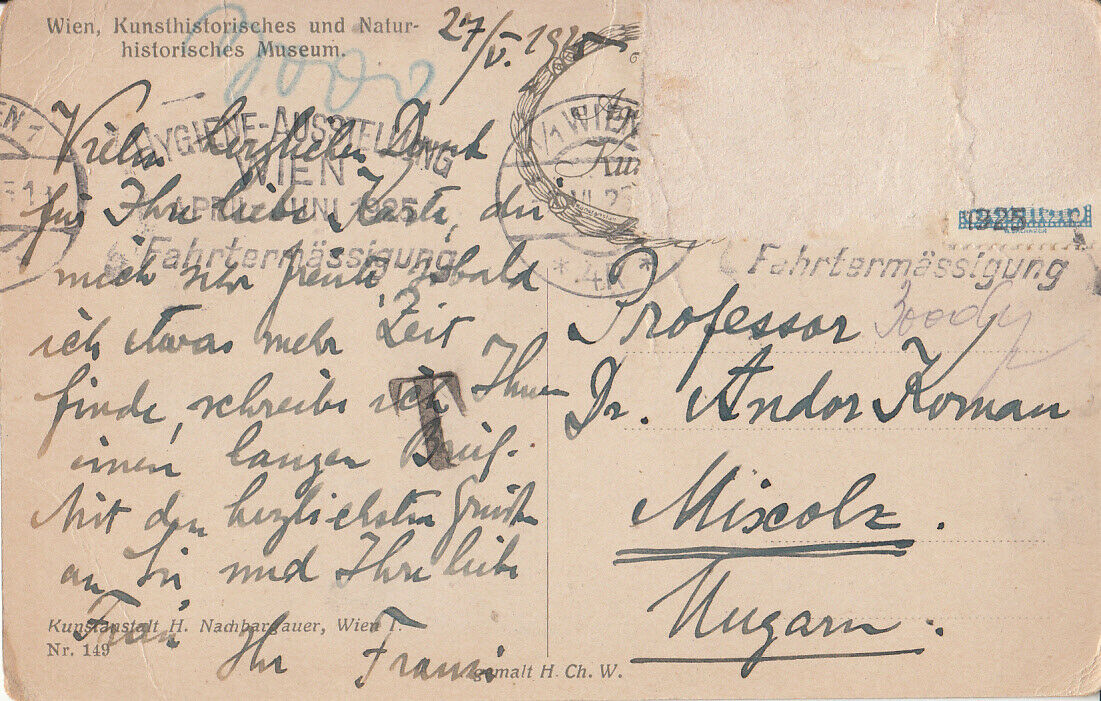 Wien, Kunsthistorisches und Natur-
historisches Museum.
27/V. 1925
3000
Vielen herzlichen Dank
für Ihre liebe Karte, die
mich sehr freute, sobald
ich etwas mehr Zeit
finde, schreibe ich Ihnen
einen langen Brief.
Mit den herzlichsten Grüßen
an Sie und Ihre liebe
Frau,
Ihr Franzi
HYGIENE-AUSSTELLUNG
WIEN
APRIL-JUNI 1925
Fahrtermässigung
WIEN
*4k*
1925
Fahrtermässigung
T
Professor
Dr. Andor Koman
Miscolz.
Ungarn.
Kunstanstalt H. Nachbargauer, Wien I.
Nr. 149
gemalt H. Ch. W.